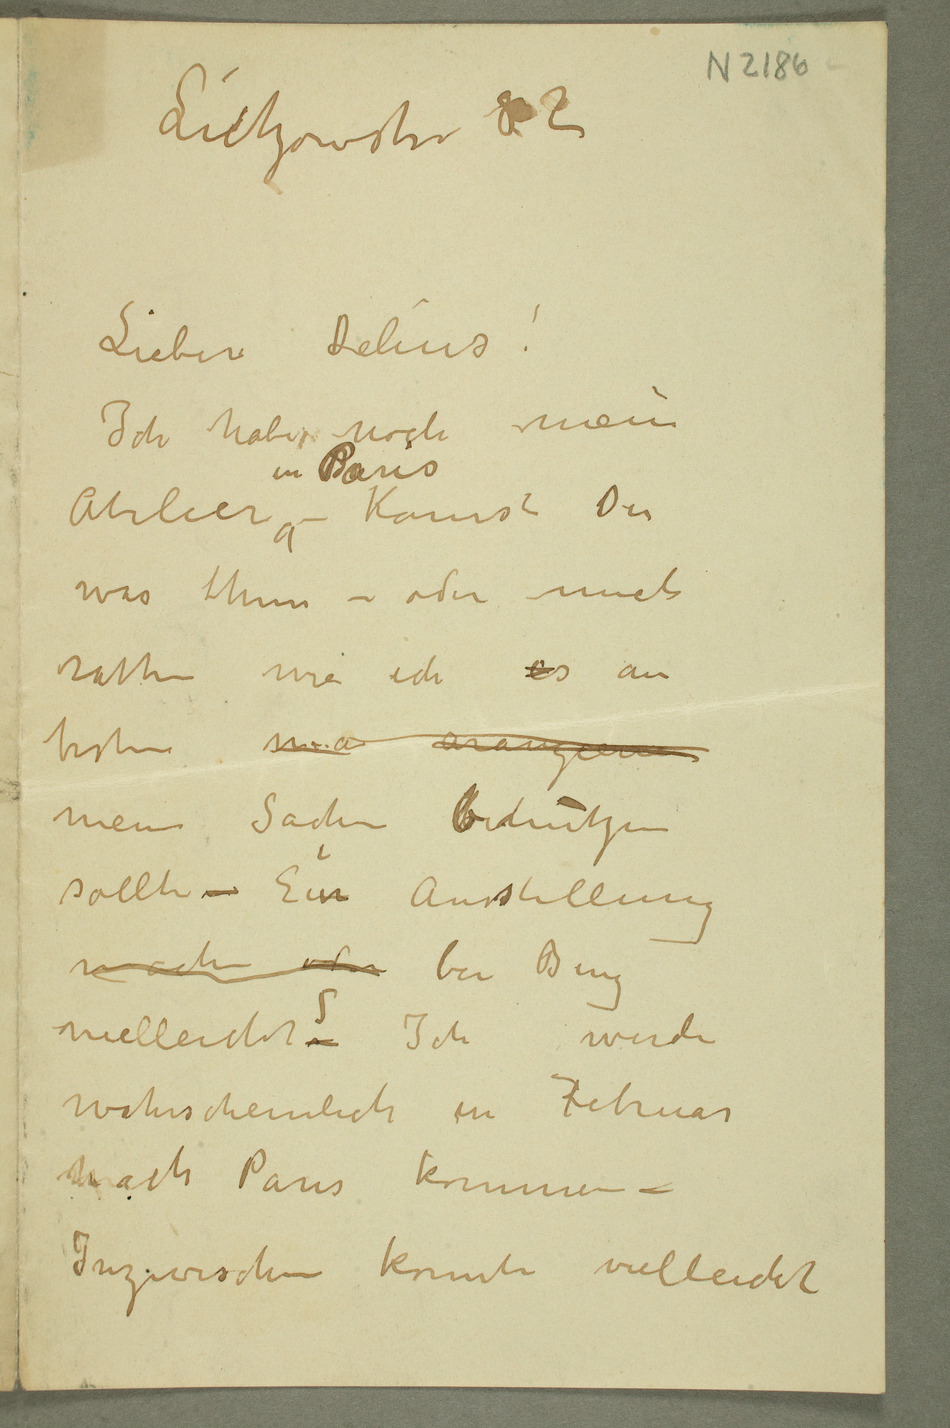 N 2186
Lützowstr 82
Lieber Delius!
Ich habe noch mein
in Paris
Atelier – Kannst Du
was thun – oder mich
rathen wie ich es am
besten ma arangieren
meine Sachen benützen
sollte – Ein Ausstellung
machen oder bei Bing
vielleicht – Ich werde
wahrscheinlich in Februar
nach Paris kommen –
Inzwischen konnte vielleicht